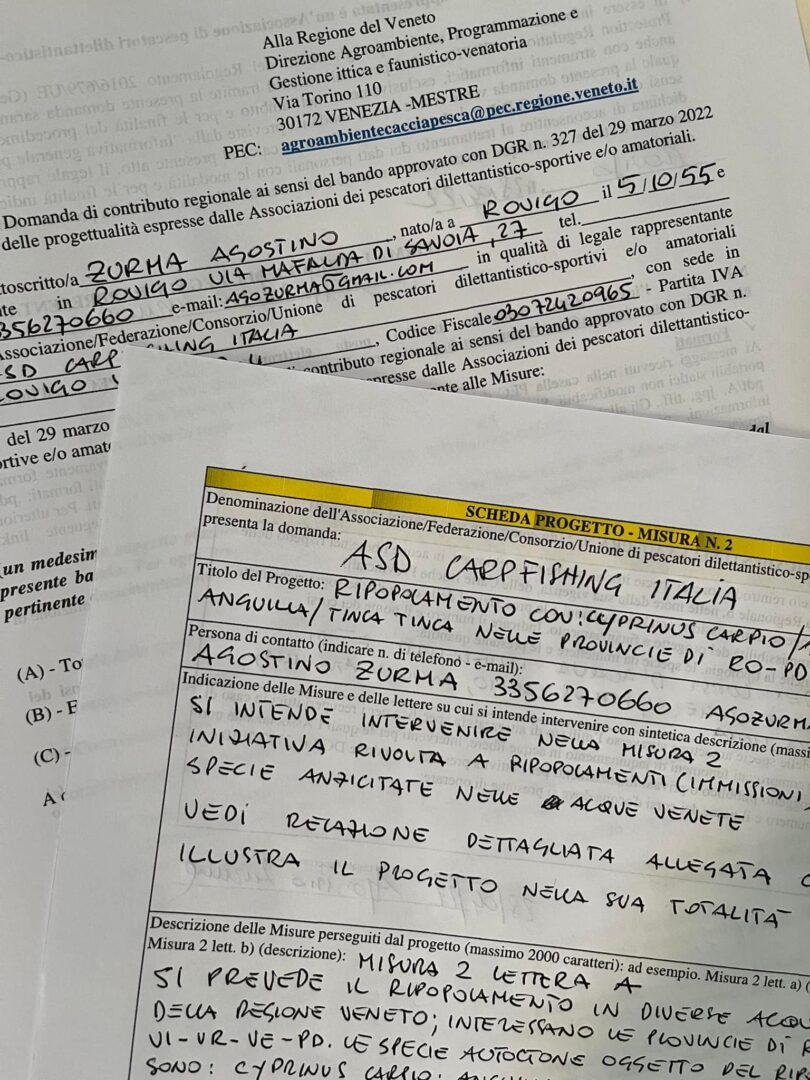 Alla Regione del Veneto
Direzione Agroambiente, Programmazione e
Gestione ittica e faunistico-venatoria
Via Torino 110
30172 VENEZIA -MESTRE
PEC: agroambientecacciapesca@pec.regione.veneto.it
Domanda di contributo regionale ai sensi del bando approvato con DGR n. 327 del 29 marzo 2022
delle progettualità espresse dalle Associazioni dei pescatori dilettantistico-sportive e/o amatoriali.
toscritto/a ZURMA AGOSTINO, nato/a a ROVIGO il 5/10/55 e
te in ROVIGO VIA MAFALDA DI SAVOIA, 27 tel.
3356270660 e-mail: AGOZURMA@GMAIL.COM in qualità di legale rappresentante
Associazione/Federazione/Consorzio/Unione di pescatori dilettantistico-sportivi e/o amatoriali
SD CARP FISHING ITALIA, Codice Fiscale 03072420965, con sede in
OVIGO - Partita IVA
contributo regionale ai sensi del bando approvato con DGR n.
espresse dalle Associazioni dei pescatori dilettantistico-
nte alle Misure:
del 29 marzo
rtive e/o amato
dal
(un medesim
presente ba
pertinente
(A) - To
(B) - E
(C) -
A
SCHEDA PROGETTO - MISURA N. 2
Denominazione dell'Associazione/Federazione/Consorzio/Unione di pescatori dilettantistico-sp
presenta la domanda:
ASD CARPFISHING ITALIA
Titolo del Progetto: RIPOPOLAMENTO CON: CYPRINUS CARPIO/
ANGUILLA/TINCA TINCA NELLE PROVINCIE DI RO-PD
Persona di contatto (indicare n. di telefono - e-mail):
AGOSTINO ZURMA 3356270660 AGOZURMA
Indicazione delle Misure e delle lettere su cui si intende intervenire con sintetica descrizione (massi
SI INTENDE INTERVENIRE NELLA MISURA 2
INIZIATIVA RIVOLTA A RIPOPOLAMENTI (IMMISSIONI)
SPECIE ANZICITATE NELLE ACQUE VENETE
VEDI RELAZIONE DETTAGLIATA ALLEGATA C
ILLUSTRA IL PROGETTO NELLA SUA TOTALITÀ
Descrizione delle Misure perseguiti dal progetto (massimo 2000 caratteri): ad esempio. Misura 2 lett. a) (
Misura 2 lett. b) (descrizione): MISURA 2 LETTERA A
SI PREVEDE IL RIPOPOLAMENTO IN DIVERSE ACQU
DELLA REGIONE VENETO; INTERESSANO LE PLOVINCIE DI R
VI-VR-VE-PD. LE SPECIE AUTOCTONE OGGETTO DEL RIP
SONO: CYPRINUS CARPIO;